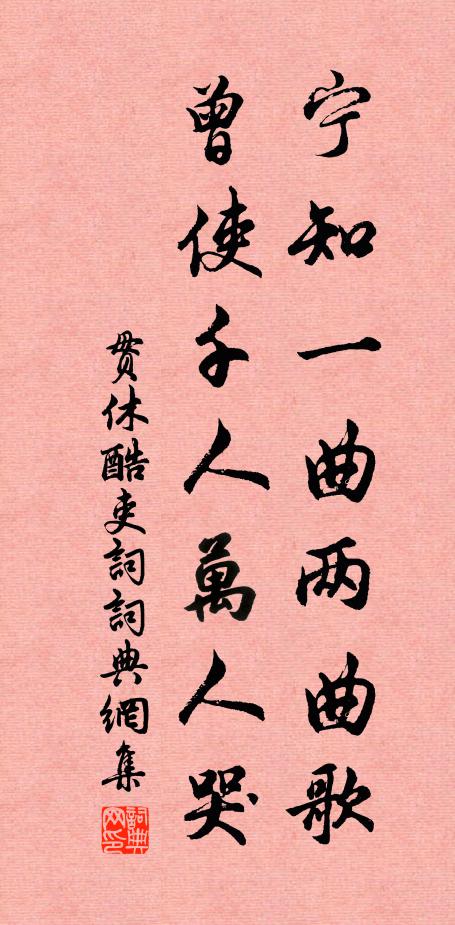 宁知一曲两曲歌
曾使千人萬人哭
贯休酷吏詞詞典網集
詞典网印